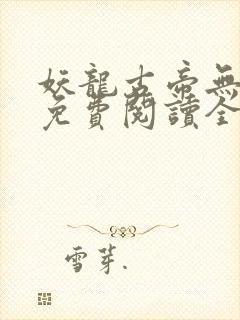 妖龍古帝無
免費閱讀全
雪芽.